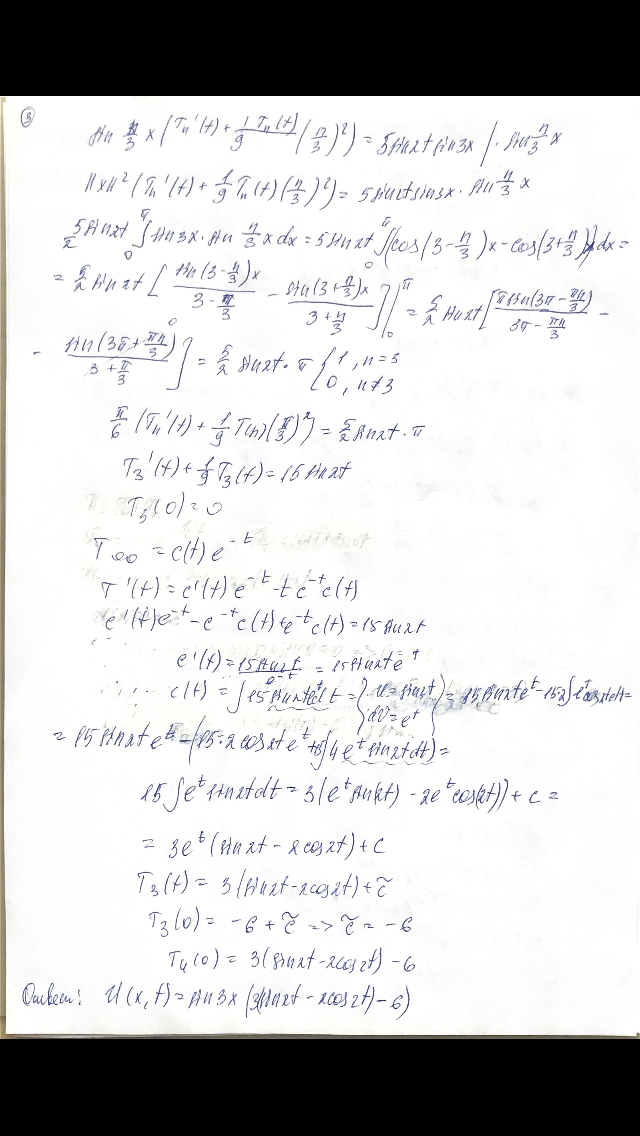 ③
sin n/3 x (Tn'(t) + 1/9 Tn(t) (n/3)²) = 5 sin 2t sin 3x | · sin n/3 x
||x||² (Tn'(t) + 1/9 Tn(t) (n/3)²) = 5 sin 2t sin 3x · sin n/3 x
5/2 sin 2t ∫₀^π sin 3x · sin n/3 x dx = 5 sin 2t ∫₀^π (cos(3 - n/3)x - cos(3 + n/3)x) dx =
= 5/2 sin 2t [ sin(3 - n/3)x / (3 - n/3) - sin(3 + n/3)x / (3 + n/3) ] |₀^π = 5/2 sin 2t [ π sin(3π - πn/3) / (3π - πn/3) -
- sin(3π + πn/3) / (3 + n/3) ] = 5/2 sin 2t · π { 1, n = 3
0, n ≠ 3
π/6 (Tn'(t) + 1/9 T(n) (π/3)²) = 5/2 sin 2t · π
T₃'(t) + 1/9 T₃(t) = 15 sin 2t
T₃(0) = 0
T₀₀ = c(t) e^-t
T'(t) = c'(t) e^-t - t e^-t c(t)
c'(t) e^-t - e^-t c(t) + e^-t c(t) = 15 sin 2t
c'(t) = 15 sin 2t / e^-t = 15 sin 2t e^t
c(t) = ∫ 15 sin 2t e^t dt = { u = sin 2t dV = e^t } = 15 sin 2t e^t - 15·2 ∫ e^t cos 2t dt =
= 15 sin 2t e^t - (15 · 2 cos 2t e^t + 15 ∫ 4 e^t sin 2t dt) =
15 ∫ e^t sin 2t dt = 3(e^t sin(2t) - 2e^t cos(2t)) + c =
= 3e^t (sin 2t - 2cos 2t) + c
T₃(t) = 3(sin 2t - 2cos 2t) + c̃
T₃(0) = -6 + c̃ => c̃ = -6
T₄(0) = 3(sin 2t - 2cos 2t) - 6
Ответ: U(x,t) = sin 3x (3(sin 2t - 2cos 2t) - 6)